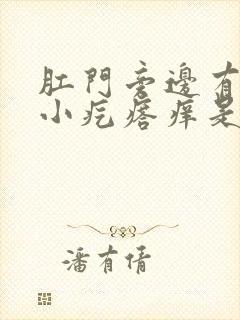 肛門旁邊有
小疙瘩痒是
潘有倩